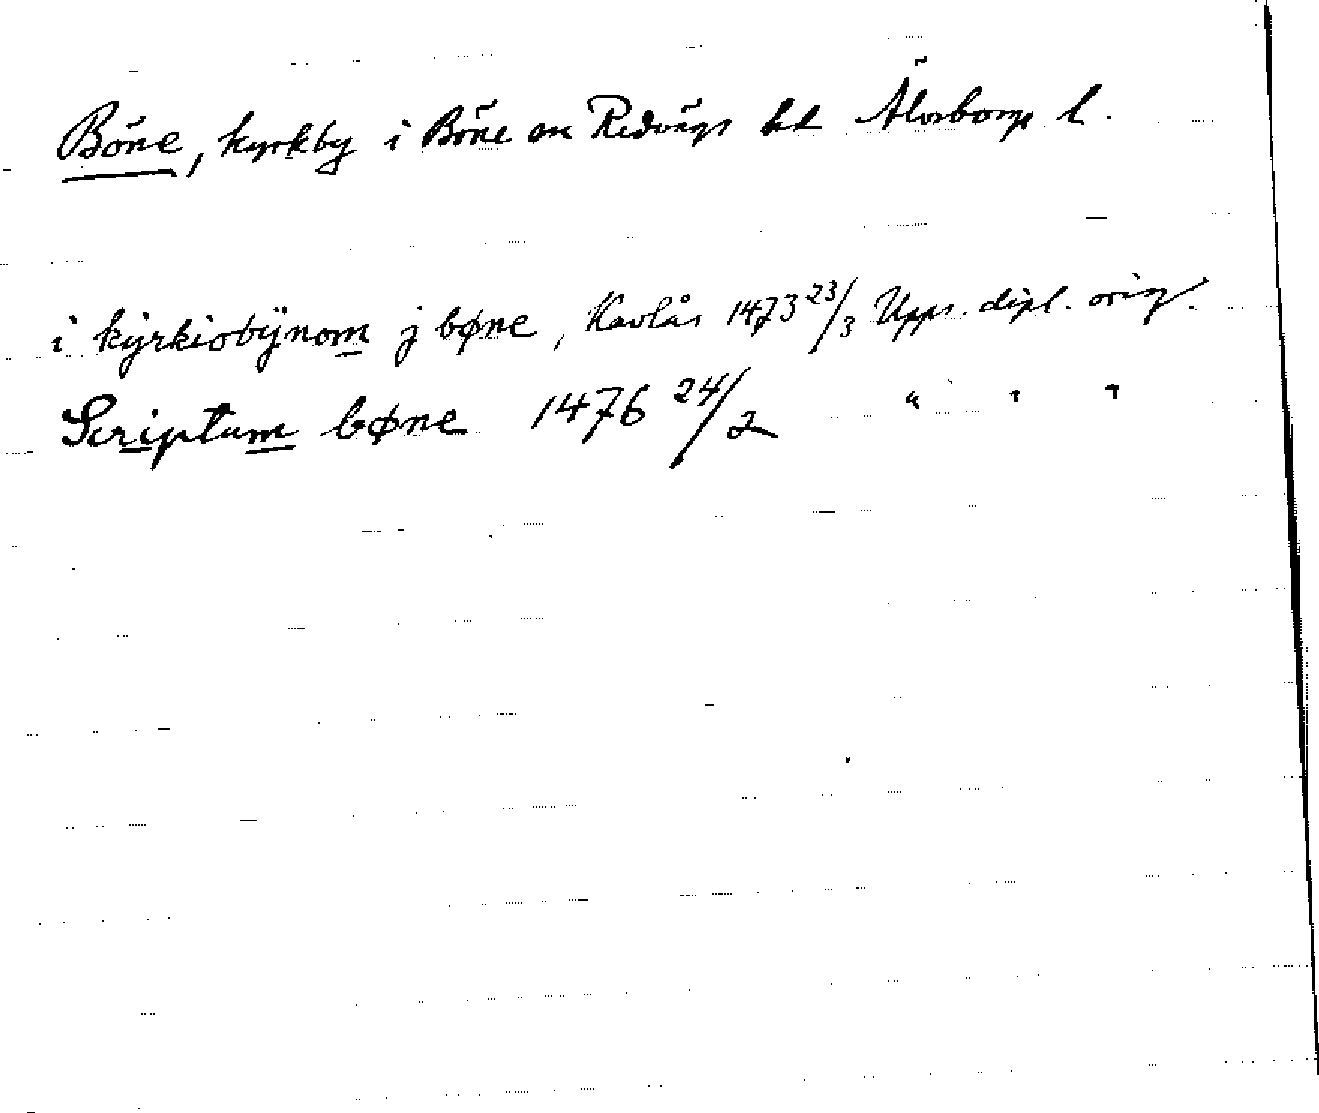 Böne, kyrkby i Böne sn Redvägs hd Älvsborgs l.
i kÿrkiobÿnom j bøne, Kavlås 1473 23/3 Upps. dipl. orig.
Scriptum bøne 1476 24/2 " " "